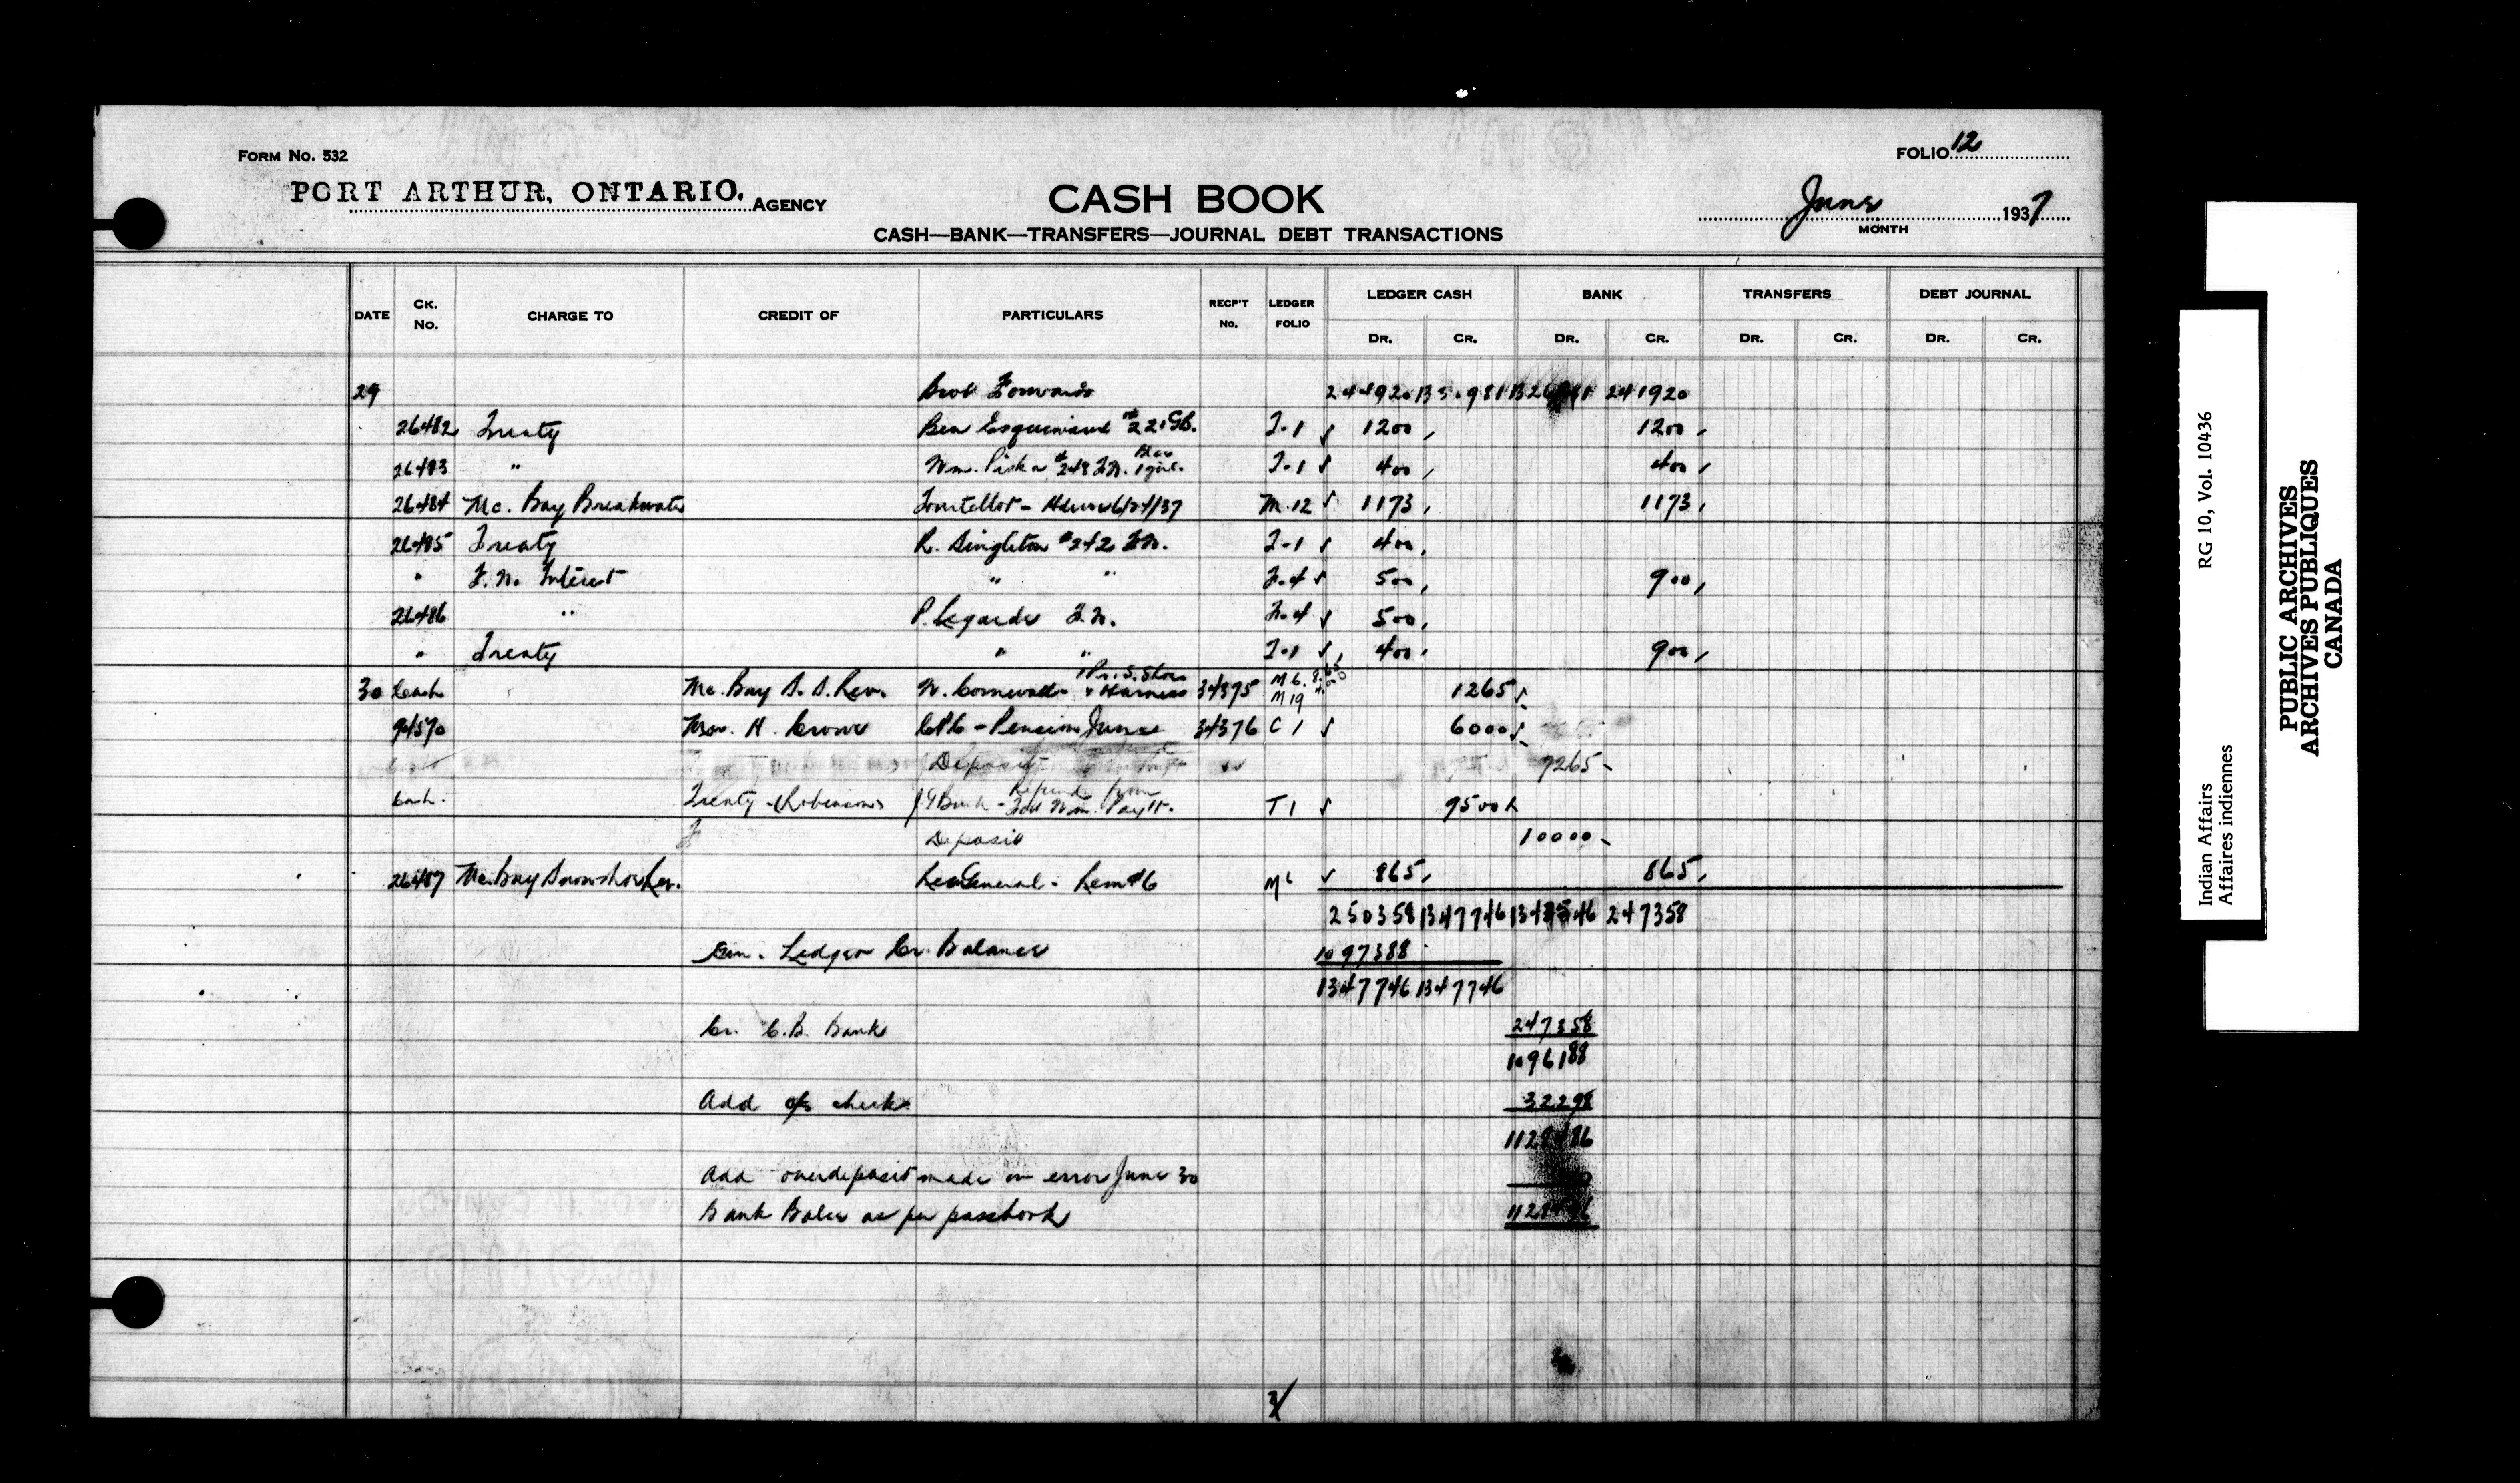 FORM NO. 532
FOLIO 12
PORT ARTHUR, ONTARIO. AGENCY
CASH BOOK
June 1937
MONTH
CASH—BANK—TRANSFERS—JOURNAL DEBT TRANSACTIONS
DATE CK. No. CHARGE TO CREDIT OF PARTICULARS RECP'T No. LEDGER FOLIO LEDGER CASH BANK TRANSFERS DEBT JOURNAL
DR. CR. DR. CR. DR. CR. DR. CR.
29 Brot Forward 241920
26482 Treaty Ben #22 GB. T-1 √ 1200 1200
26483 " Wm. #248 F.W. T-1 √ 400 400
26484 Mc. Bay Breakwater 6/24/37 M.12 √ 1173 1173
26485 Treaty R. Singleton #242 F.W. T-1 √ 400
" F.W. Interest " " F.4 √ 500 900
26486 " P. Legarde F.W. F.4 √ 500
" Treaty " " T-1 √ 400 900
30 Cash Mc. Bay S. S. Rev. N. Cornwall - 1 Pr. S. Shoes & Harness 34375 M6. M19 1265 √
94570 Mrs. H. Crowe - Pension June 34376 C1 √ 6000 √
Deposit 7265
Cash. Treaty - Robinson Refund from T1 √ 9500
Deposit 10000
26487 Mc. Bay Snowshoe Rev. Rec General - Rem #6 M6 √ 865 865
250358 1347746 247358
Gen. Ledger Cr. Balance 1097388
1347746 1347746
Cr. C.B. Bank 247358
1096188
Add o/s checks 32298
1128486
Add overdeposit made in error June 30
Bank Balce as per passbook
Indian Affairs RG 10, Vol. 10436
Affaires indiennes
PUBLIC ARCHIVES
ARCHIVES PUBLIQUES
CANADA